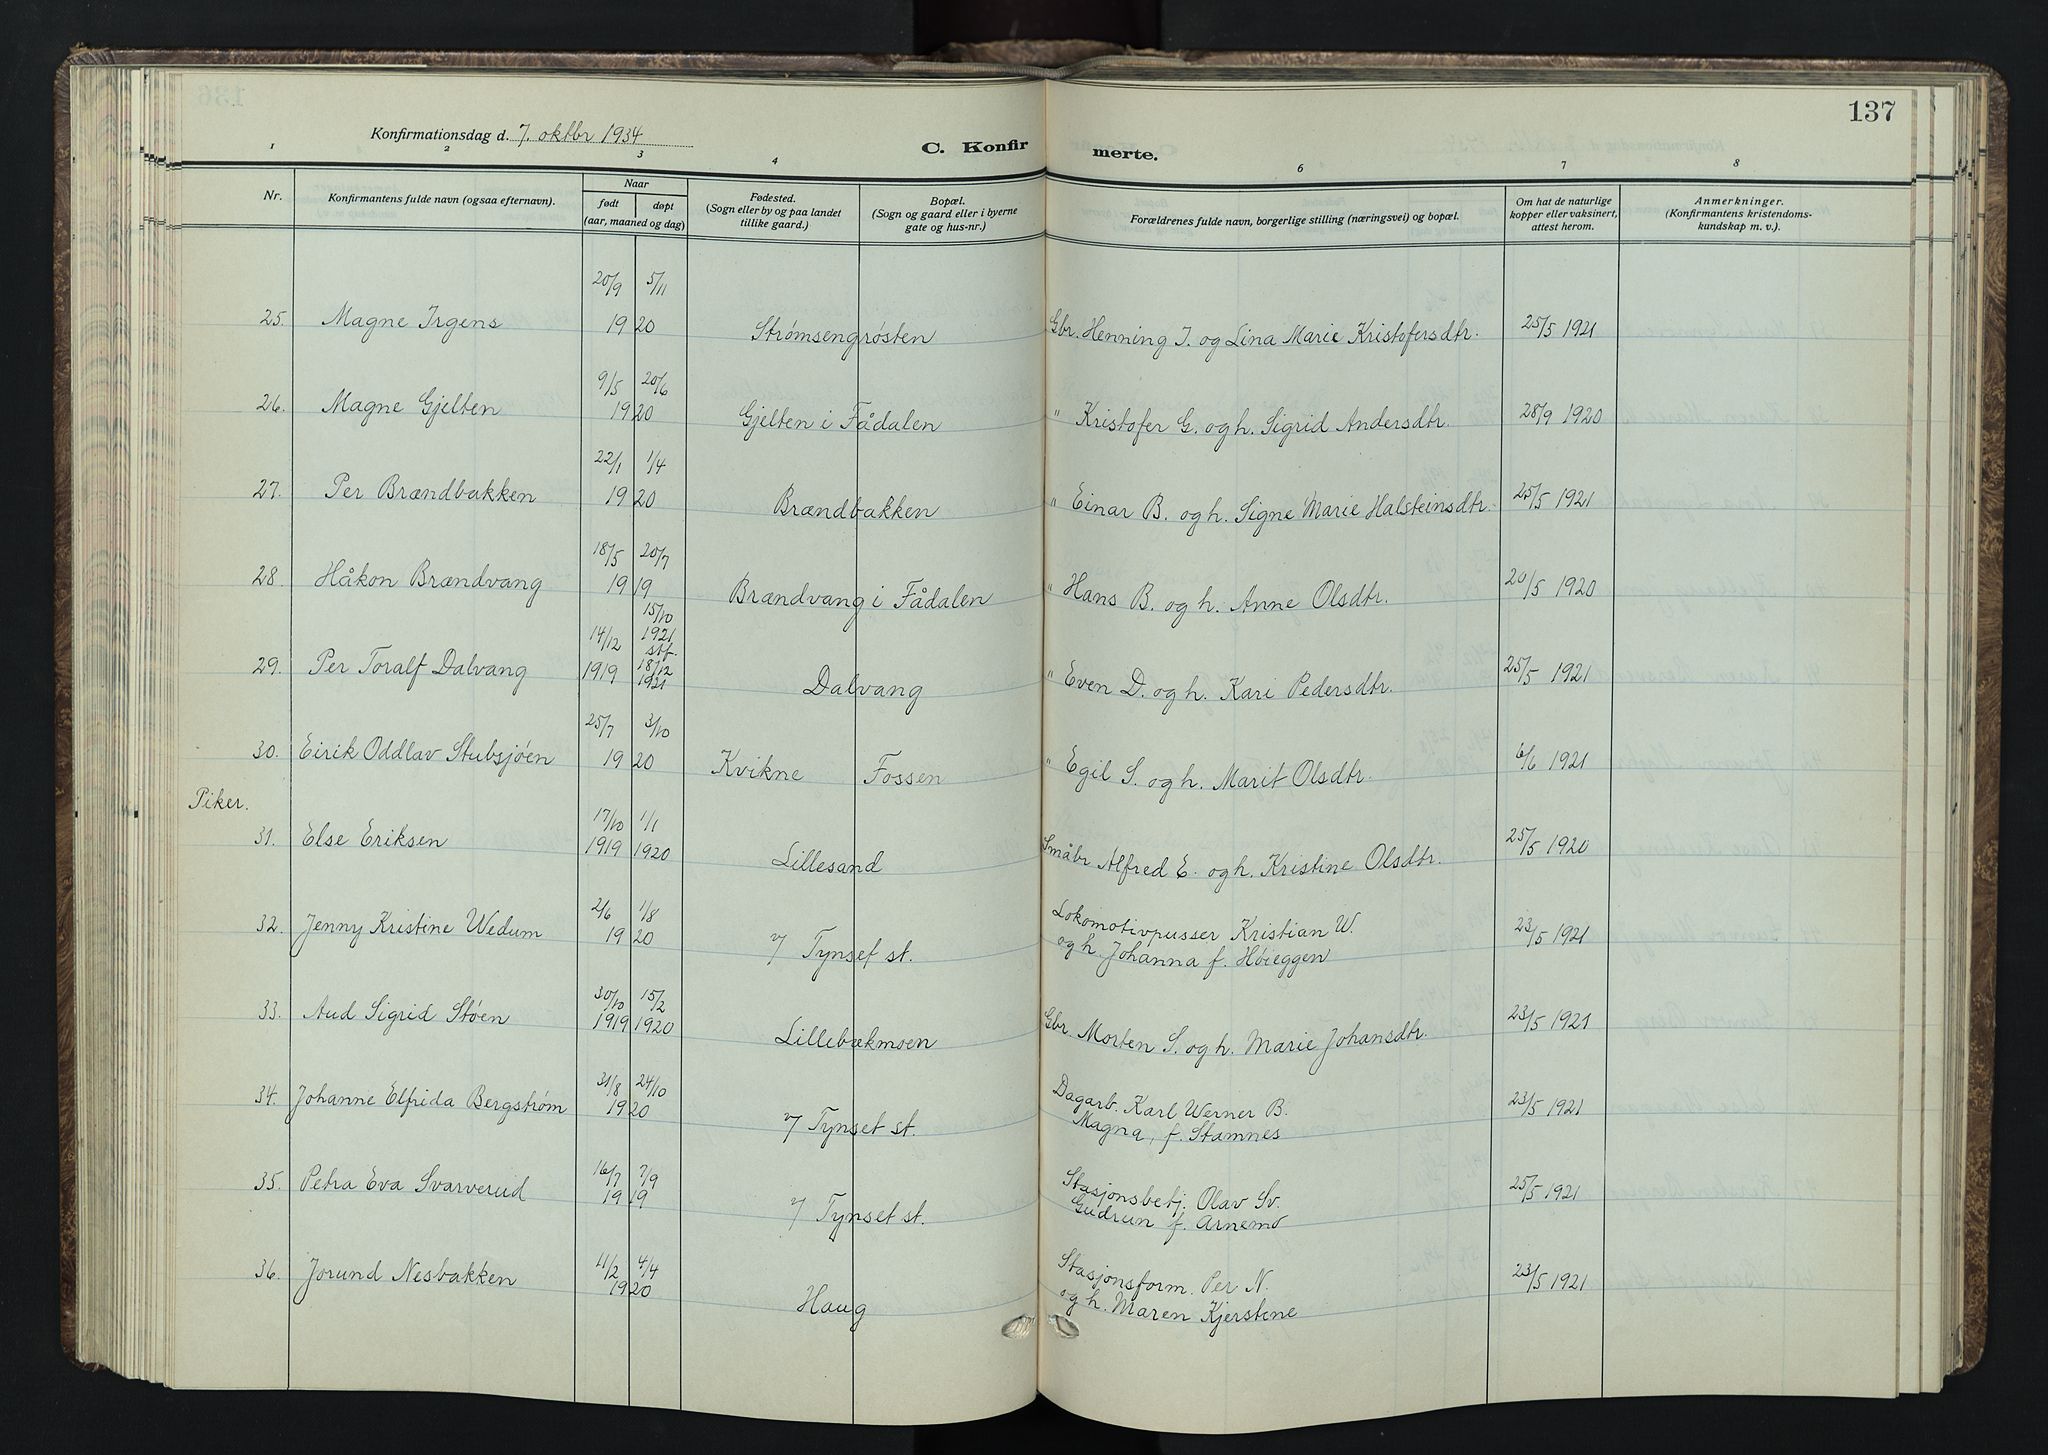 137
Konfirmationsdag d. 7. oktbr 1934
C. Konfirmerte.
1 2 3 4 6 7 8
Nr.
Konfirmantens fulde navn (ogsaa efternavn).
Naar
født døpt
(aar, maaned og dag)
Fødested.
(Sogn eller by og paa landet
tillike gaard.)
Bopæl.
(Sogn og gaard eller i byerne
gate og hus-nr.)
Forældrenes fulde navn, borgerlige stilling (næringsvei) og bopæl.
Om hat de naturlige
kopper eller vaksinert,
attest herom.
Anmerkninger.
(Konfirmantens kristendoms-
kundskap m. v.).
20/9 5/11
25. Magne Irgens 1920 Strømsengrøsten Gbr. Henning I. og Lina Marie Kristofersdtr. 25/5 1921
9/5 20/6
26. Magne Gjelten 1920 Gjelten i Fådalen " Kristofer G. og h. Sigrid Andersdtr. 28/9 1920
22/1 1/4
27. Per Brændbakken 1920 Brændbakken " Einar B. og h. Signe Marie Halsteinsdtr. 25/5 1921
18/5 20/7
28. Håkon Brændvang 1919 Brændvang i Fådalen " Hans B. og h. Anne Olsdtr. 20/5 1920
15/10
14/12 1921
stf.
29. Per Toralf Dalvang 1919 18/12 1921 Dalvang " Even D. og h. Kari Pedersdtr. 25/5 1921
25/7 3/10
30. Eirik Oddlav Stubsjøen 1920 Kvikne Fossen " Egil S. og h. Marit Olsdtr. 6/6 1921
Piker.
17/10 1/1
31. Else Eriksen 1919 1920 Lillesand Småbr Alfred E. og h. Kristine Olsdtr. 25/5 1920
2/6 1/8
32. Jenny Kristine Wedum 1920 7 Tynset st. Lokomotivpusser Kristian W.
og h. Johanna f. Høieggen 23/5 1921
30/10 15/2
33. Aud Sigrid Støen 1919 1920 Lillebækmoen Gbr. Morten S. og h. Marie Johansdtr. 23/5 1921
31/8 24/10
34. Johanne Elfrida Bergstrøm 1920 7 Tynset st. Dagarb. Karl Werner B.
Magna, f. Stamnes 23/5 1921
16/7 7/9
35. Petra Eva Svarverud 1919 7 Tynset st. Stasjonsbetj. Olav Sv.
Gudrun f. Arnemo 25/5 1921
11/2 4/4
36. Jorund Nesbakken 1920 Haug Stasjonsform. Per N.
og h. Maren Kjerstine 23/5 1921